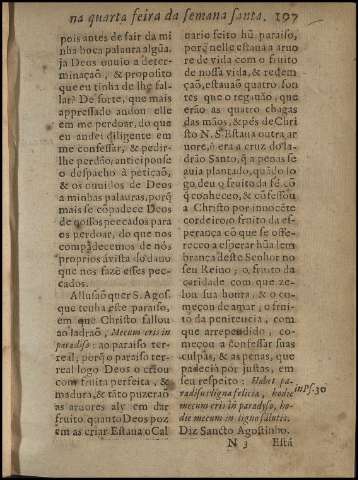 na quarta feira da semana santa. 197
pois antes de sair da mi
nha boca palaura algũa,
ja Deos ouuio a deter-
minação, & proposito
que eu tinha de lhe fal-
lar? De sorte, que mais
apressado andou elle
em me perdoar, do que
eu andei diligente em
me confessar, & pedir-
lhe perdão, anteciponse
o despacho à petição,
& os ouuidos de Deos
a minhas palauras, porq̃
mais se cõpadece Deos
de nossos peccados para
os perdoar, do que nos
compadecemos de nós
proprios á vista do dano
que nos fazẽ esses pec-
cados.
Allusaõ quer S. Agost.
que tenha este paraiso,
em que Christo fallou
ao ladraõ, Mecum eris in
paradiso: ao paraiso ter-
real; porq̃ o paraiso ter-
real logo Deos o criou
com fruita perfeita, &
madura, & tãto puzeraõ
as aruores aly em dar
fruito quanto Deos poz
em as criar Estaua o Cal
uario feito hũ paraiso,
porq̃ nelle estaua a aruo
re de vida com o fruito
de nossa vida, & redem
çaõ, estauaõ quatro fon
tes que o regauaõ, que
erão as quatro chagas
das mãos, & pés de Chri
sto N. S. Estaua outra ar
uore, q̃ era a cruz do la-
drão Santo, q̃ a penas se
auia plantado, quãdo lo
go, deu o fruito da fé, cõ
q̃ conheceo, & cõfessou
a Christo por innocẽte
cordeiro, o fruito da es-
perança cõ que se offe-
receo a esperar hũa lem
brança deste Senhor no
seu Reino; o, fruito da
caridade com que ze-
lou sua honra, & o co-
meçou de amar, o frui-
to da penitencia, com
que arrependido, co-
meçou a confessar suas
culpas, & as penas, que
padecia por justas, em
seu respeito: Habet pa-
radisus ligna felicia, hodie
mecum eris in paradyso, ho-
die mecum in ligno salutis.
Diz Sancto Agostinho.
in Ps. 30
N 3 Está